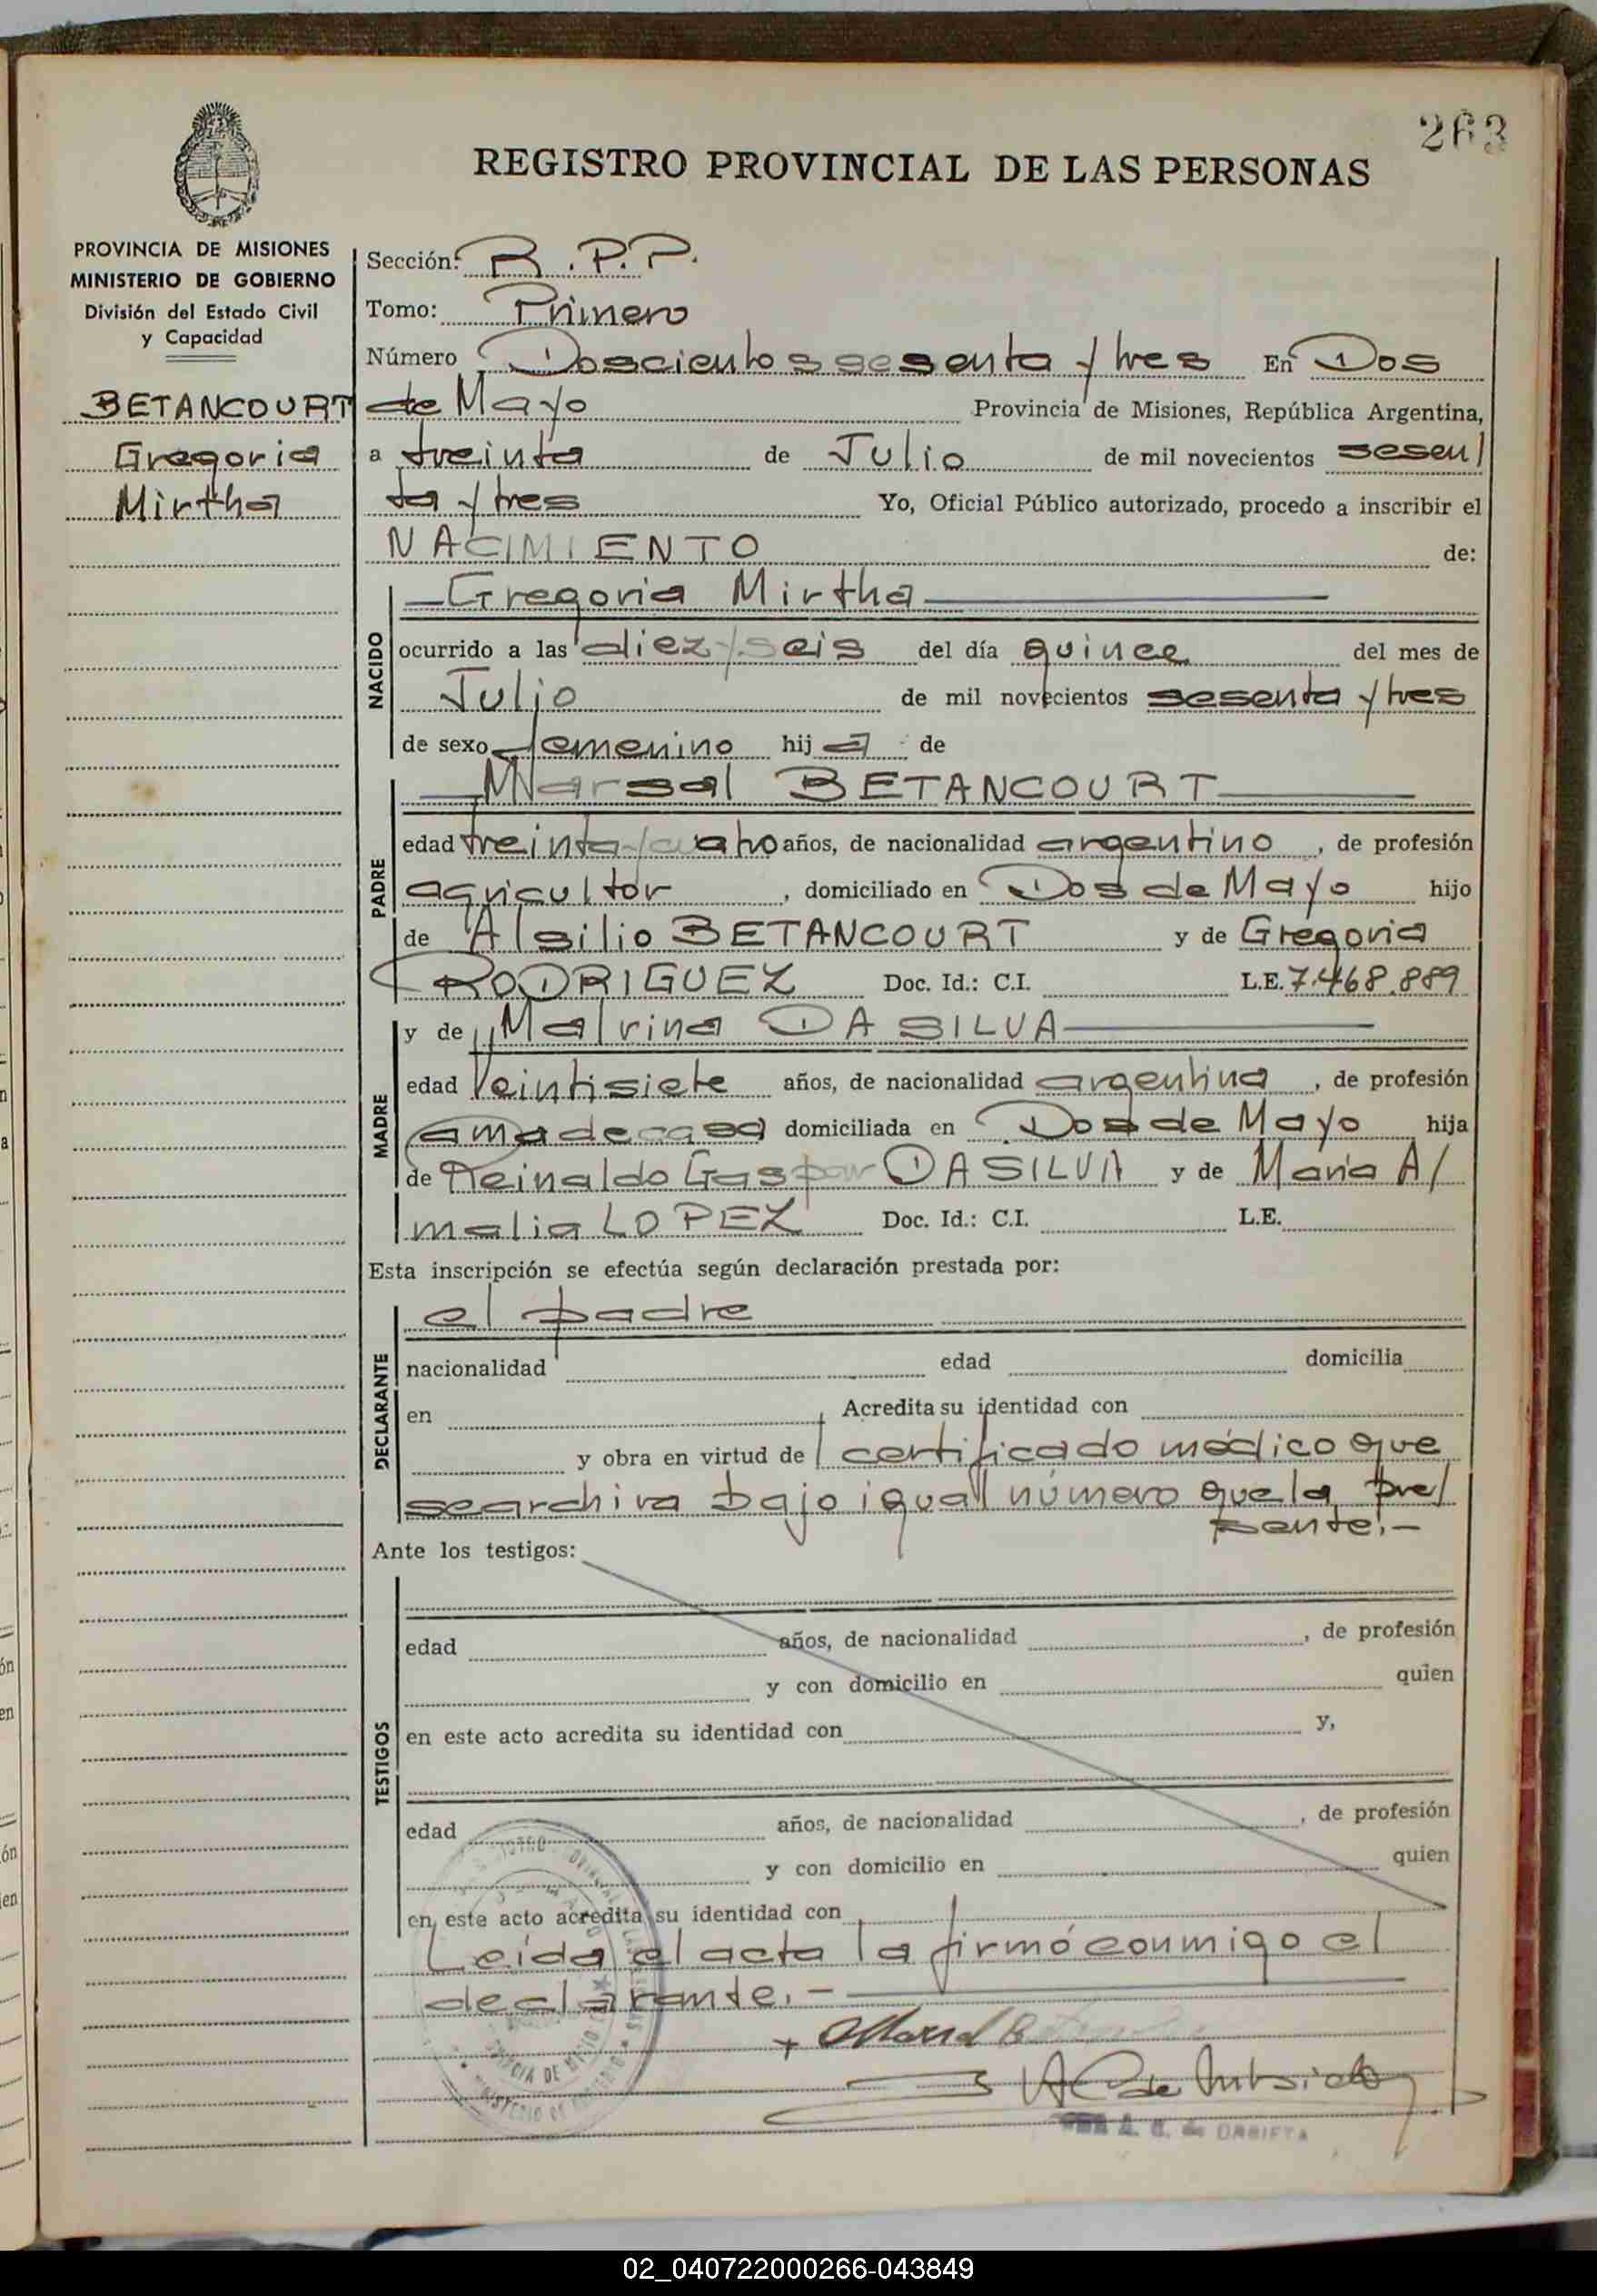 263
REGISTRO PROVINCIAL DE LAS PERSONAS
PROVINCIA DE MISIONES
MINISTERIO DE GOBIERNO
División del Estado Civil
y Capacidad
BETANCOURT
Gregoria
Mirtha
Sección: R.P.P.
Tomo: Primero
Número Doscientos sesenta y tres En Dos
de Mayo Provincia de Misiones, República Argentina,
a treinta de Julio de mil novecientos sesen/
ta y tres Yo, Oficial Público autorizado, procedo a inscribir el
NACIMIENTO de:
NACIDO
Gregoria Mirtha
ocurrido a las diez y seis del día quince del mes de
Julio de mil novecientos sesenta y tres
de sexo femenino hij a de
PADRE
Marsal BETANCOURT
edad treinta y cuatro años, de nacionalidad argentino, de profesión
agricultor, domiciliado en Dos de Mayo hijo
de Alsilio BETANCOURT y de Gregoria
RODRIGUEZ Doc. Id.: C.I. L.E. 7.468.889
MADRE
y de Malvina DA SILVA
edad Veintisiete años, de nacionalidad argentina, de profesión
ama de casa domiciliada en Dos de Mayo hija
de Reinaldo Gaspar DA SILVA y de María A/
malia LOPEZ Doc. Id.: C.I. L.E.
Esta inscripción se efectúa según declaración prestada por:
DECLARANTE
el padre
nacionalidad edad domicilia
en Acredita su identidad con
y obra en virtud de certificado médico que
se archiva bajo igual número que la pre/
sente.-
Ante los testigos:
TESTIGOS
edad años, de nacionalidad , de profesión
y con domicilio en quien
en este acto acredita su identidad con y,
edad años, de nacionalidad , de profesión
y con domicilio en quien
en este acto acredita su identidad con
Leída el acta la firmó conmigo el
declarante.-
02_040722000266-043849